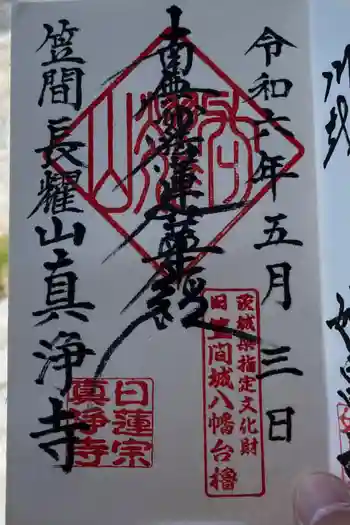 令和六年五月三日
南無妙法蓮華経
笠間長耀山真浄寺
茨城県指定文化財
旧笠間城八幡台櫓
日蓮宗
真浄寺